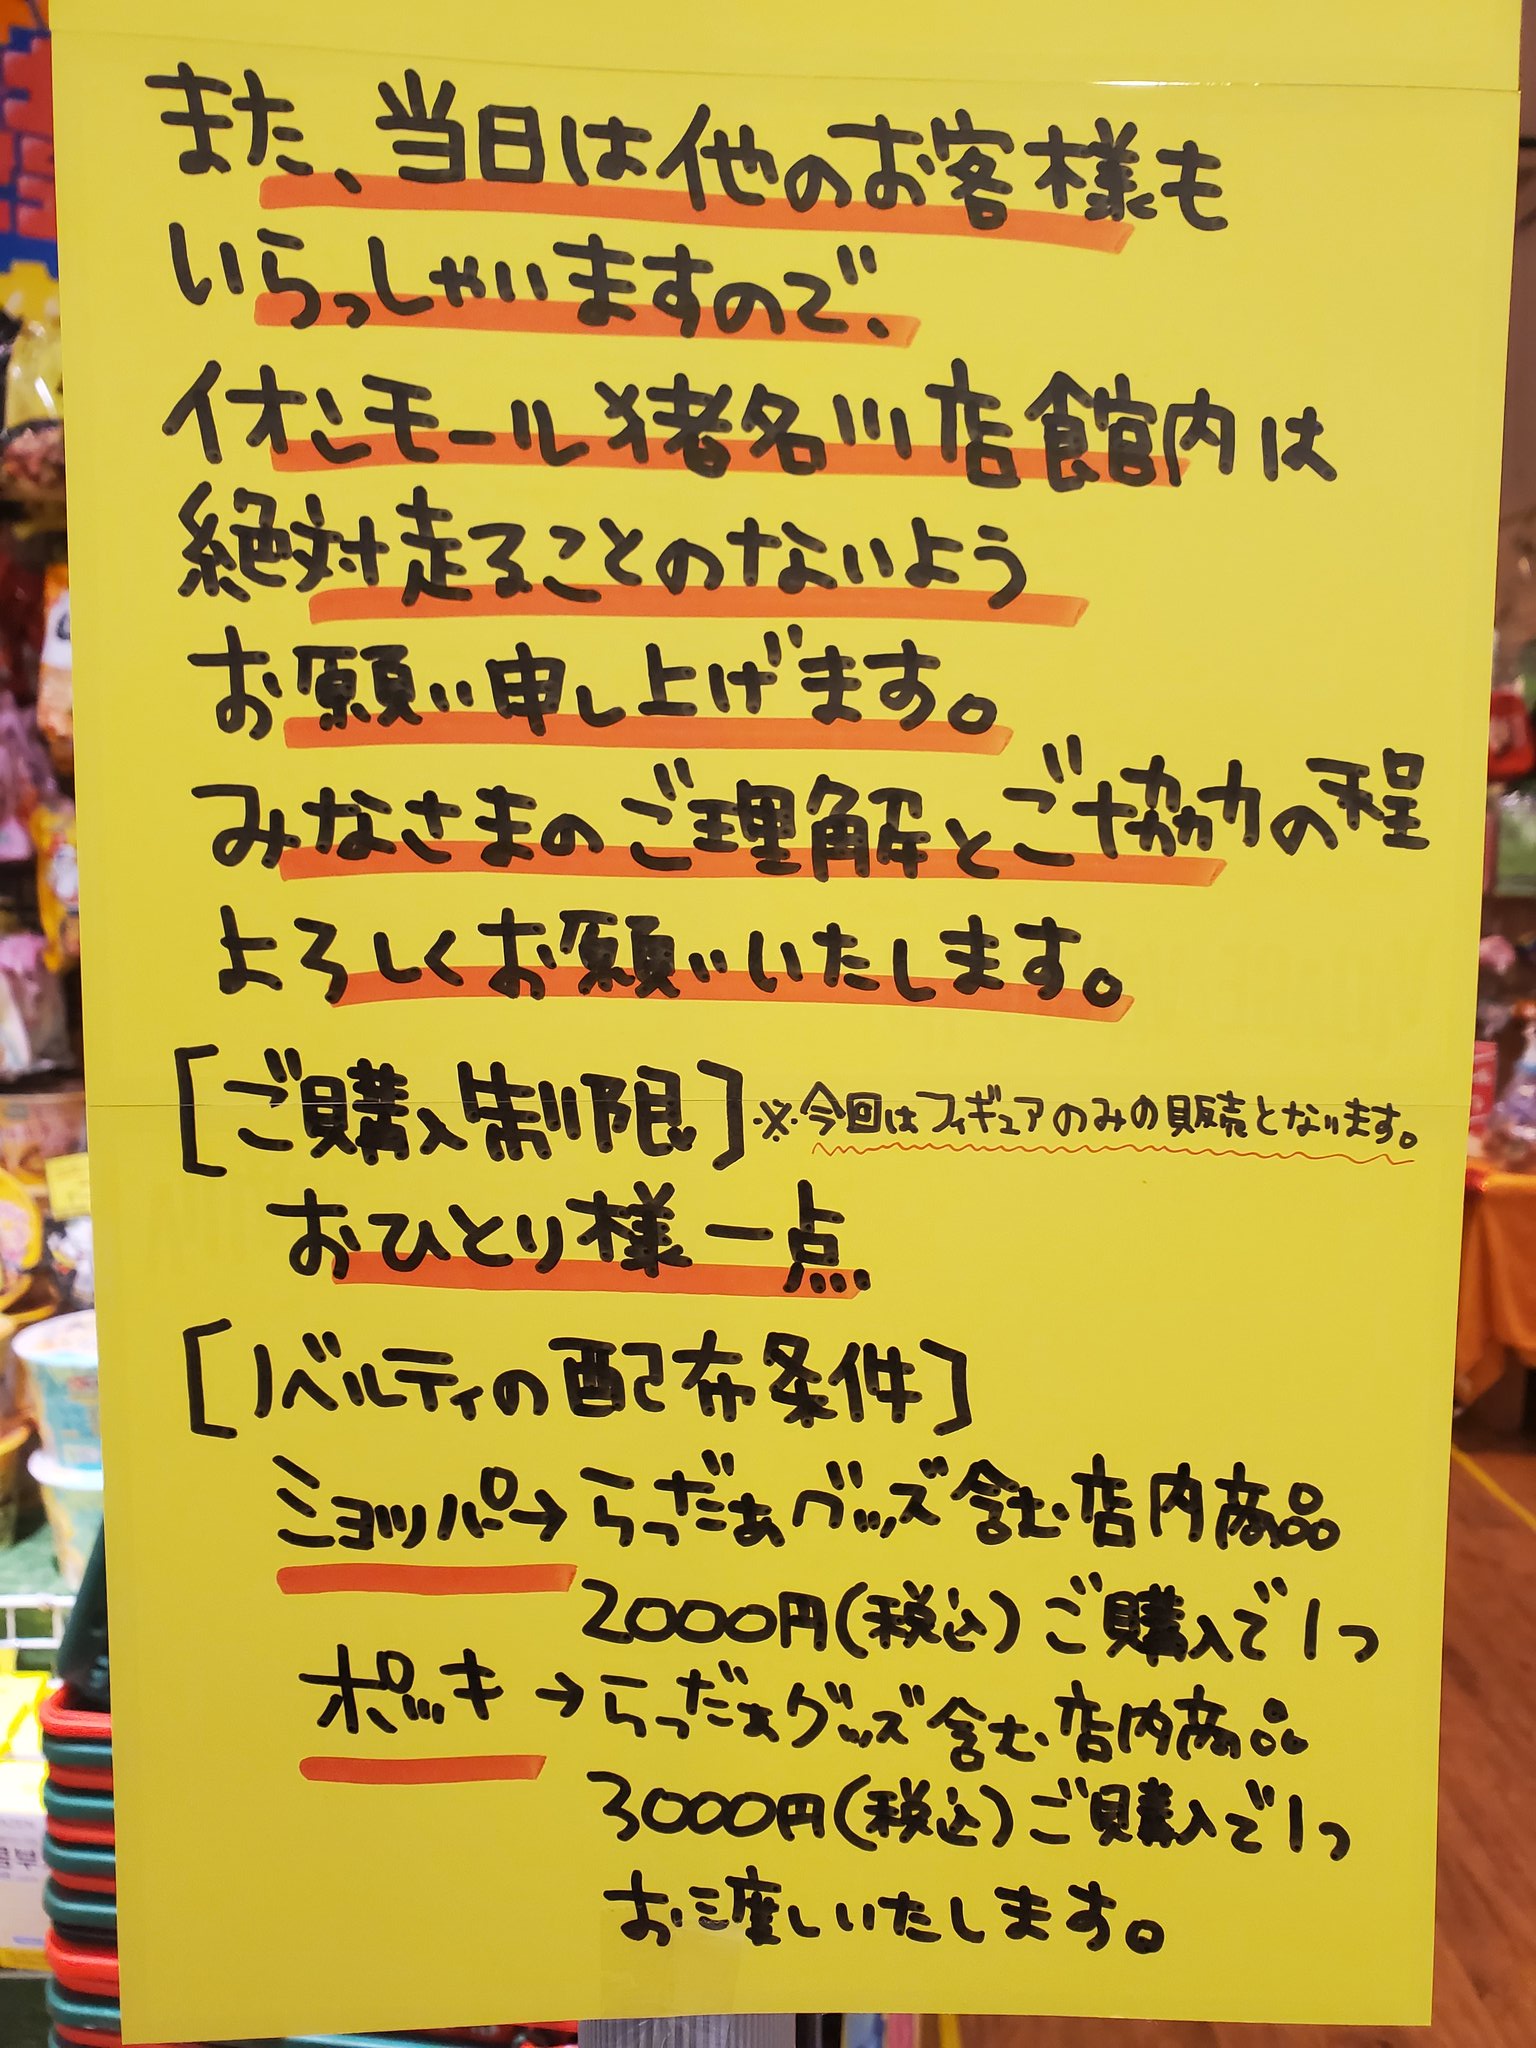 また、当日は他のお客様も
いらっしゃいますので、
イオンモール猪名川店館内は
絶対走ることのないよう
お願い申し上げます。
みなさまのご理解とご協力の程
よろしくお願いいたします。
[ご購入制限]※今回はフィギュアのみの販売となります。
おひとり様一点
[ノベルティの配布条件]
ショッパー→らっだぁグッズ含む店内商品
2000円(税込)ご購入で1つ
ポッキ→らっだぁグッズ含む店内商品
3000円(税込)ご購入で1つ
お渡しいたします。